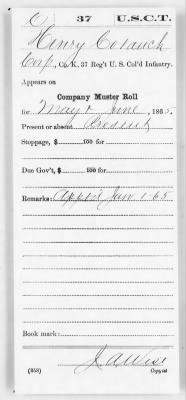 C 37 U.S.C.T.
Henry Corauck
Corp, Co. K, 37 Reg't U. S. Col'd Infantry.
Appears on
Company Muster Roll
for May & June, 1865.
Present or absent Present
Stoppage, $ 100 for
Due Gov't, $ 100 for
Remarks: App't'd Jan. 1-65
Book mark:
J A Wise
(358) Copyist